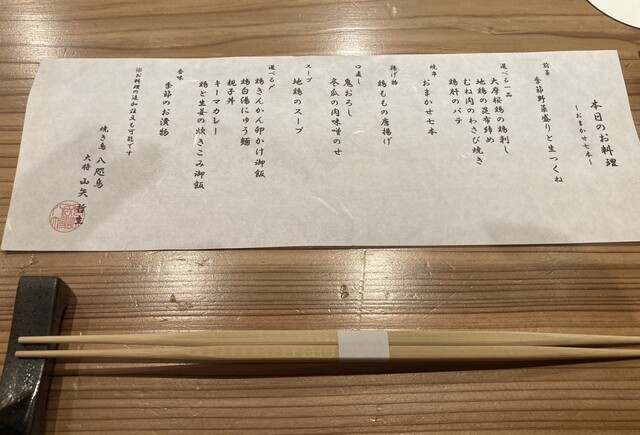 本日のお料理
～おまかせ七本～
前菜
季節野菜盛りと生つくね
選べる一品
大摩桜鶏の鶏刺し
地鶏の昆布締め
むね肉のわさび焼き
鶏肝のパテ
焼串
おまかせ七本
揚げ物
鶏ももの唐揚げ
口直し
鬼おろし
冬瓜の肉味噌のせ
スープ
地鶏のスープ
選べる〆
鶏きんかん卵かけ御飯
鶏白湯にゅう麺
親子丼
キーマカレー
鶏と生姜の炊きこみ御飯
香味
季節のお漬物
※お料理の追加注文も可能です
焼き鳥 八咫烏
大将 山矢